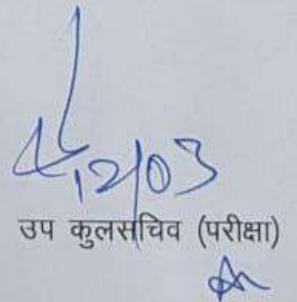 12/03
उप कुलसचिव (परीक्षा)